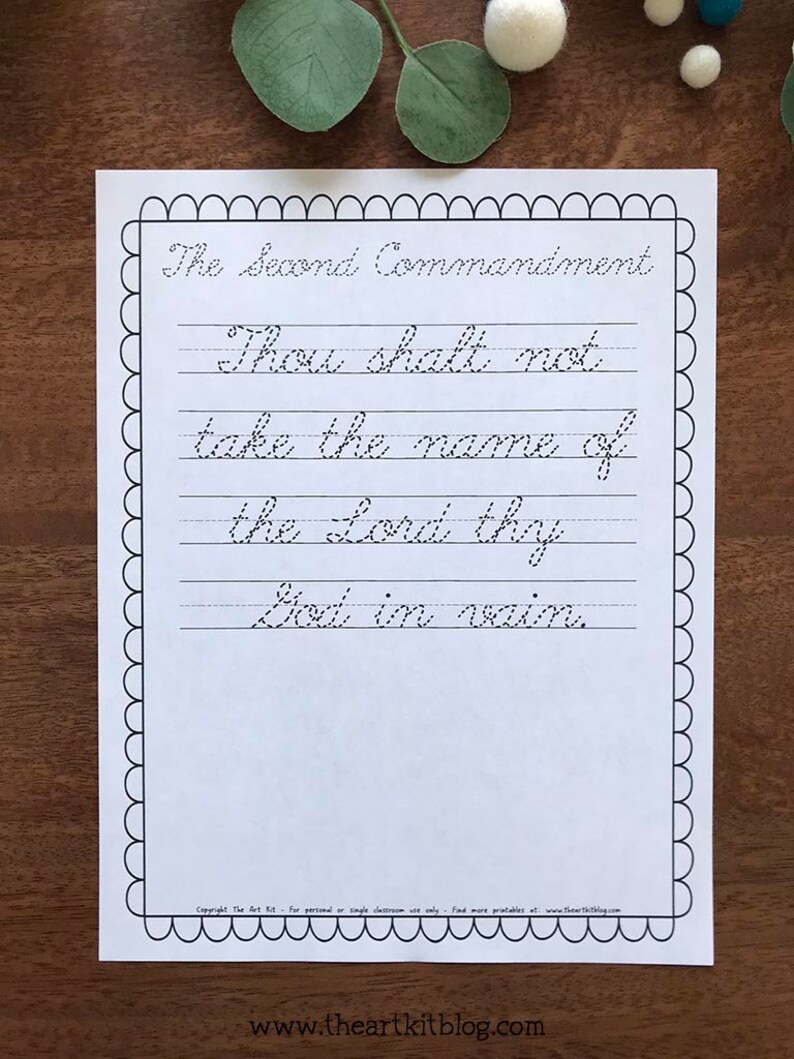 The Second Commandment
Thou shalt not
take the name of
the Lord thy
God in vain.
Copyright The Art Kit - For personal or single classroom use only - Find more printables at: www.theartkitblog.com
www.theartkitblog.com